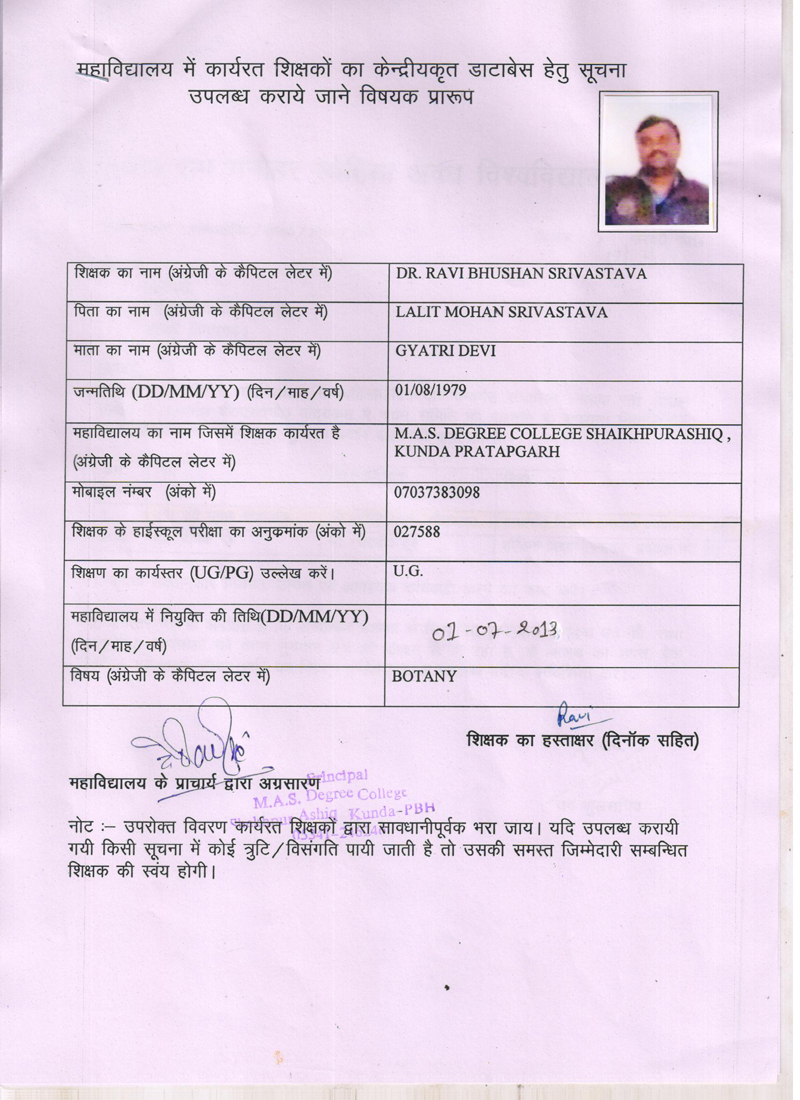 महाविद्यालय में कार्यरत शिक्षकों का केन्द्रीयकृत डाटाबेस हेतु सूचना
उपलब्ध कराये जाने विषयक प्रारूप
शिक्षक का नाम (अंग्रेजी के कैपिटल लेटर में) DR. RAVI BHUSHAN SRIVASTAVA
पिता का नाम (अंग्रेजी के कैपिटल लेटर में) LALIT MOHAN SRIVASTAVA
माता का नाम (अंग्रेजी के कैपिटल लेटर में) GYATRI DEVI
जन्मतिथि (DD/MM/YY) (दिन/माह/वर्ष) 01/08/1979
महाविद्यालय का नाम जिसमें शिक्षक कार्यरत है
(अंग्रेजी के कैपिटल लेटर में)
M.A.S. DEGREE COLLEGE SHAIKHPURASHIQ ,
KUNDA PRATAPGARH
मोबाइल नंम्बर (अंको में) 07037383098
शिक्षक के हाईस्कूल परीक्षा का अनुक्रमांक (अंको में) 027588
शिक्षण का कार्यस्तर (UG/PG) उल्लेख करें। U.G.
महाविद्यालय में नियुक्ति की तिथि(DD/MM/YY)
(दिन/माह/वर्ष)
01-07-2013
विषय (अंग्रेजी के कैपिटल लेटर में) BOTANY
Ravi
शिक्षक का हस्ताक्षर (दिनॉक सहित)
महाविद्यालय के प्राचार्य द्वारा अग्रसारण
Principal
M.A.S. Degree College
Ashiq Kunda-PBH
नोट :– उपरोक्त विवरण कार्यरत शिक्षकों द्वारा सावधानीपूर्वक भरा जाय। यदि उपलब्ध करायी
गयी किसी सूचना में कोई त्रुटि/विसंगति पायी जाती है तो उसकी समस्त जिम्मेदारी सम्बन्धित
शिक्षक की स्वंय होगी।